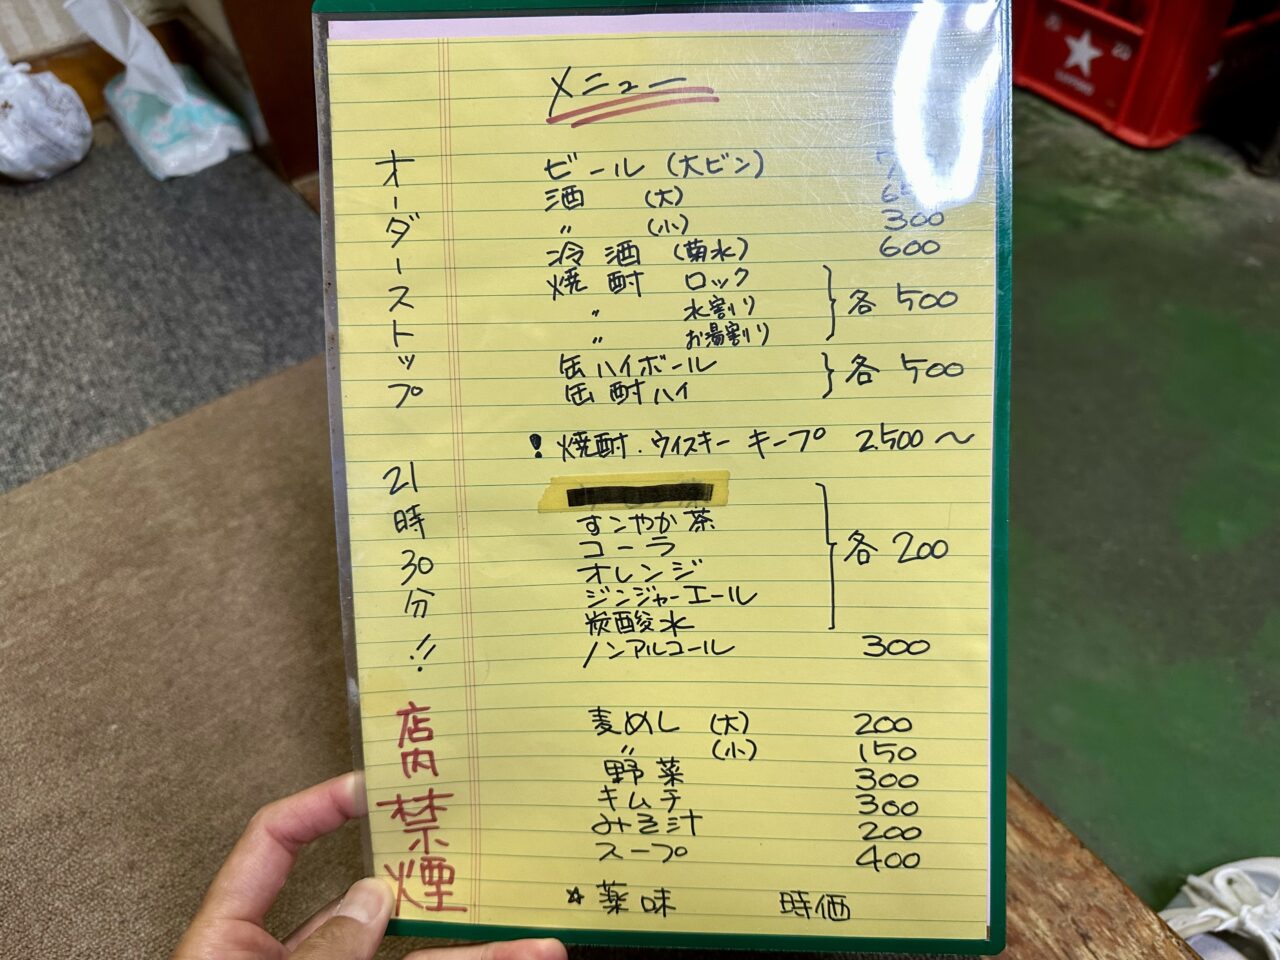 メニュー
オーダーストップ
21時30分!!
店内禁煙
ビール (大ビン)
酒 (大)
〃 (小) 300
冷酒 (菊水) 600
焼酎 ロック
〃 水割り
〃 お湯割り
各 500
缶ハイボール
缶酎ハイ
各 500
! 焼酎.ウイスキー キープ 2,500〜
すこやか茶
コーラ
オレンジ
ジンジャーエール
炭酸水
各 200
ノンアルコール 300
麦めし (大) 200
〃 (小) 150
野菜 300
キムチ 300
みそ汁 200
スープ 400
☆薬味 時価